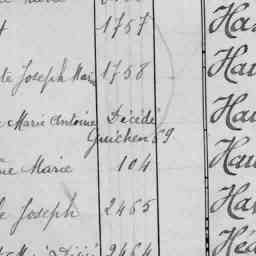 1757 Ha
te Joseph Marie 1758 Hau
Marie Antoine Décédé Hau
Guichen 59
ne Marie 104 Hau
le Joseph 2465 Ha
2464 Hé